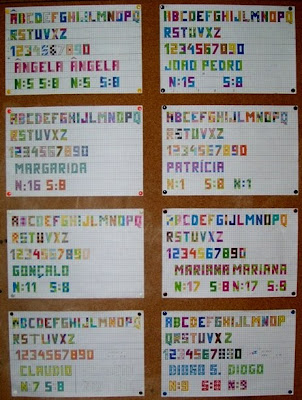 ABCDEFGHIJLMNOPQ
RSTUVXZ
1234567890
ÂNGELA ÂNGELA
N:5 N:5 S:8
ABCDEFGHIJLMNOPQ
RSTUVXZ
1234567890
JOAO PEDRO
N:15 S:8
ABCDEFGHIJLMNOPQ
RSTUVXZ
1234567890
MARGARIDA
N:16 S:8
ABCDEFGHIJLMNOPQ
RSTUVXZ
1234567890
PATRÍCIA
N:1 S:8 N:1
ABCDEFGHIJLMNOPQ
RSTUVXZ
1234567890
GONÇALO
N:11 S:8
ABCDEFGHIJLMNOPQ
RSTUVXZ
1234567890
MARIANA MARIANA
N:17 S:8 N:17 S:8
ABCDEFGHIJLMNOPQ
RSTUVXZ
1234567890
CLAUDIO
N:7 S:8
ABCDEFGHIJLMNOP
QRSTUVXZ
1234567890
DIOGO S. DIOGO
N:8 S:8 N:9